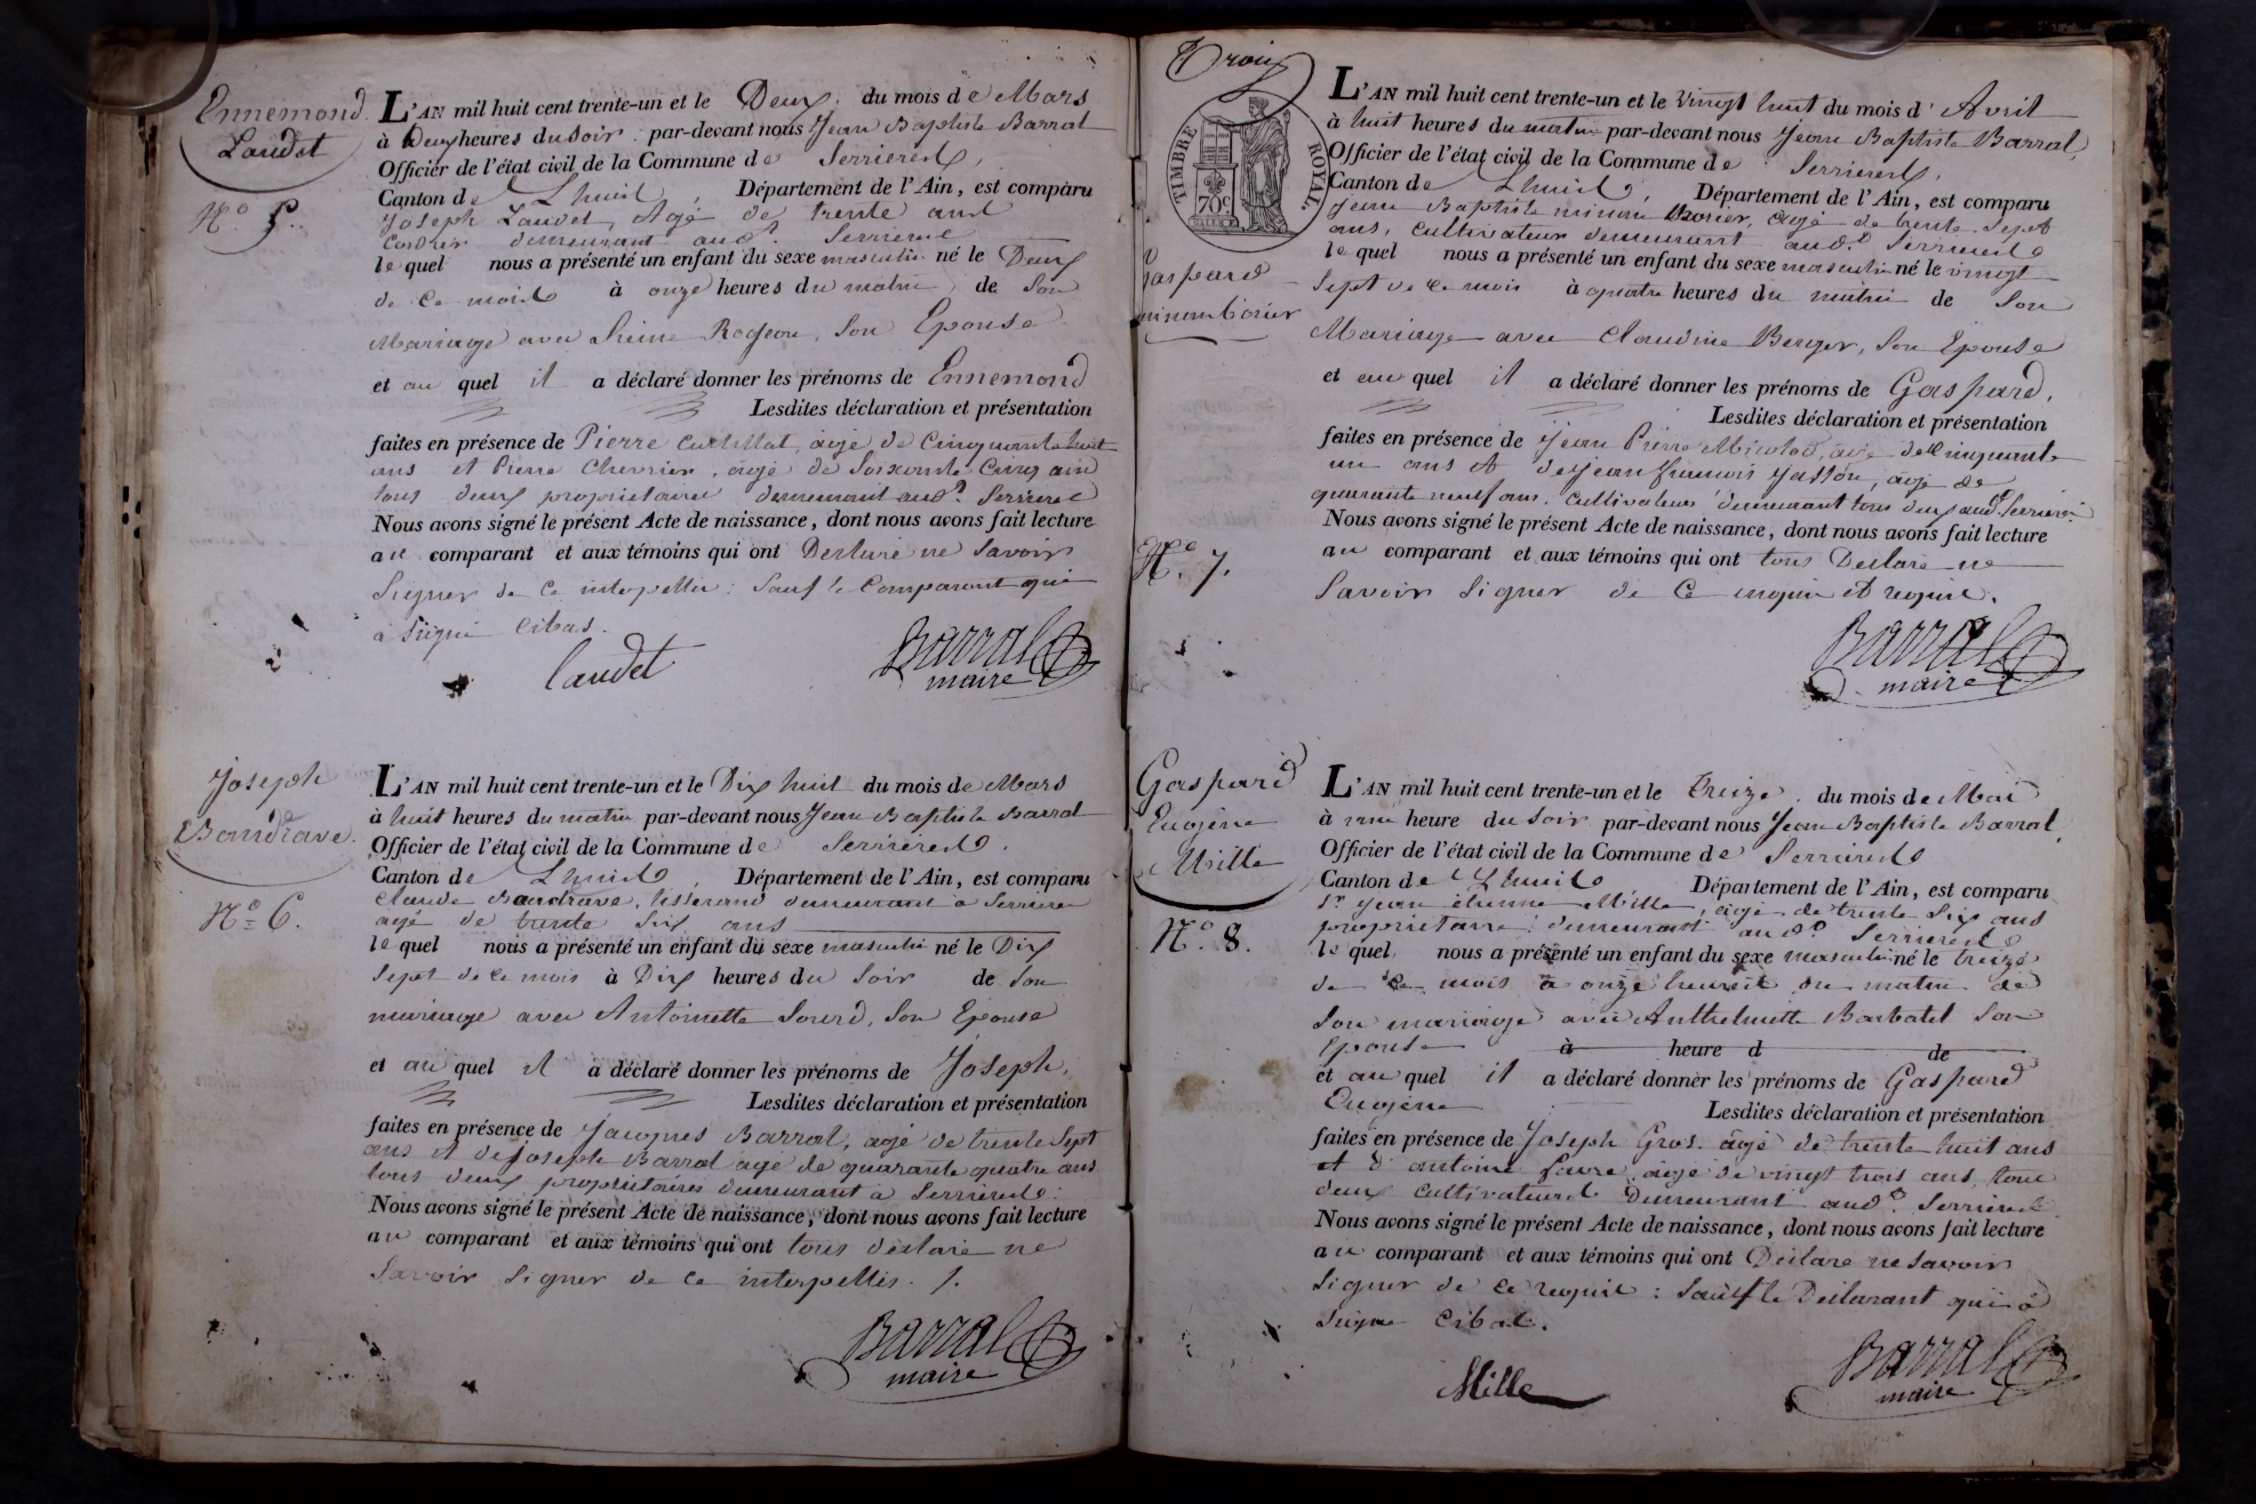 Ennemond
Laudet
N.o 5.
L'AN mil huit cent trente-un et le Deux du mois de Mars
à Deux heures du Soir par-devant nous Jean Baptiste Barral
Officier de l'état civil de la Commune de Serrieres,
Canton de Lhuis, Département de l'Ain, est comparu
Joseph Laudet, Agé de trente ans
demeurant aud.t Serrieres
le quel nous a présenté un enfant du sexe masculin né le Deux
de ce mois à onze heures du matin de Son
Mariage avec Rogeon, Son Epouse
et au quel il a déclaré donner les prénoms de Ennemond
Lesdites déclaration et présentation
faites en présence de Pierre agé de Cinquante huit
ans et Pierre Chevrier, agé de Soixante Cinq ans
tous deux proprietaires demeurant aud.t Serrieres
Nous avons signé le présent Acte de naissance, dont nous avons fait lecture
au comparant et aux témoins qui ont Declaré ne Savoir
Signer de Ce interpellés : Sauf le Comparant qui
a Signé Cibas.
Laudet
Barral
maire
Joseph
Bandrave.
N.o 6.
L'AN mil huit cent trente-un et le Dix huit du mois de Mars
à huit heures du matin par-devant nous Jean Baptiste Barral
Officier de l'état civil de la Commune de Serrieres.
Canton de Lhuis, Département de l'Ain, est comparu
Claude Bandrave, tisserand demeurant à Serrieres
agé de trente Six ans
le quel nous a présenté un enfant du sexe masculin né le Dix
Sept de ce mois à Dix heures du Soir de Son
mariage avec Antoinette Sourd, Son Epouse
et au quel il a déclaré donner les prénoms de Joseph,
Lesdites déclaration et présentation
faites en présence de Jacques Barral, agé de trente Sept
ans et de Joseph Barral agé de quarante quatre ans
tous deux proprietaires demeurant à Serrieres.
Nous avons signé le présent Acte de naissance, dont nous avons fait lecture
au comparant et aux témoins qui ont tous déclaré ne
Savoir Signer de ce interpellés.
Barral
maire
Trois
TIMBRE ROYAL.
70c
Gaspard
L'AN mil huit cent trente-un et le Vingt huit du mois d'Avril
à huit heures du matin par-devant nous Jean Baptiste Barral,
Officier de l'état civil de la Commune de Serrieres,
Canton de Lhuis, Département de l'Ain, est comparu
Jean Baptiste agé de trente Sept
ans, Cultivateur demeurant aud.t Serrieres
le quel nous a présenté un enfant du sexe masculin né le vingt
Sept de ce mois à quatre heures du matin de Son
Mariage avec Claudine Berger, Son Epouse
et au quel il a déclaré donner les prénoms de Gaspard,
Lesdites déclaration et présentation
faites en présence de Jean Pierre Micolod, agé de Cinquante
un ans et de Jean francois Jasson, agé de
quarante neuf ans. Cultivateurs demeurant tous deux aud.t Serrieres
N.o 7.
Nous avons signé le présent Acte de naissance, dont nous avons fait lecture
au comparant et aux témoins qui ont tous Declaré ne
Savoir Signer de Ce enquis et requis.
Barral
maire
Gaspard
Eugène
Mille
N.o 8.
L'AN mil huit cent trente-un et le treize du mois de Mai
à une heure du Soir par-devant nous Jean Baptiste Barral,
Officier de l'état civil de la Commune de Serrieres
Canton de Lhuis, Département de l'Ain, est comparu
S.r Jean étienne Mille, agé de trente Six ans
proprietaire demeurant aud.t Serrieres
le quel nous a présenté un enfant du sexe masculin né le treize
de ce mois à onze heures du matin de
Son mariage avec Anthelmette Barbatel Son
Epouse à heure d de
et au quel il a déclaré donner les prénoms de Gaspard
Eugène Lesdites déclaration et présentation
faites en présence de Joseph Gros. agé de trente huit ans
et d'antoine favre, agé de vingt trois ans, tous
deux Cultivateurs Demeurant aud.t Serrieres
Nous avons signé le présent Acte de naissance, dont nous avons fait lecture
au comparant et aux témoins qui ont Déclaré ne Savoir
Signer de ce requis : Sauf le Déclarant qui a
Signé Cibas.
Mille
Barral
maire